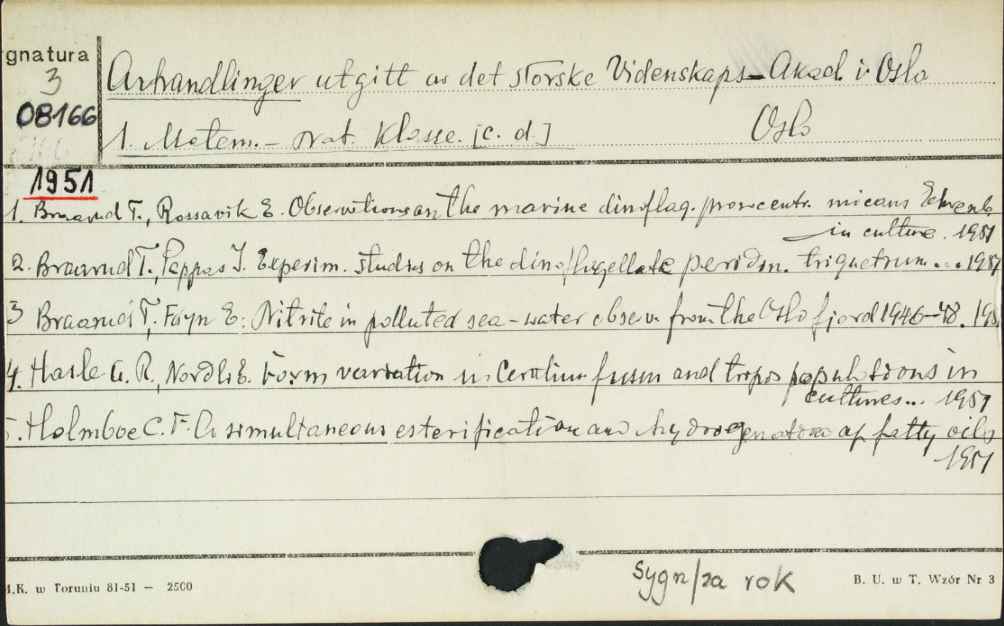 gnatura
3
08166
Avhandlinger utgitt av det Norske Videnskaps-Akad i Oslo
1. Matem. - Nat. Klasse. [c. d.] Oslo
1951
1. Braarud T., Rossavik E. Observations on the marine dinoflag. prorocentr. micans Ehrenb.
in culture. 1951
2. Braarud T., Pappas I. Experim. studies on the dinoflagellate peridin. triquetrum... 1951
3 Braarud T., Føyn E: Nitrite in polluted sea-water observ from the Oslofjord 1946-48. 195
4. Hasle G. R., Nordli E. Form variation in Ceratium fusus and tripos populations in
cultures... 1951
. Holmboe C. F. A simultaneous esterification and hydrogenation of fatty oils
1951
sygn/za rok
.K. w Toruniu 81-51 — 2500
B. U. w T. Wzór Nr 3